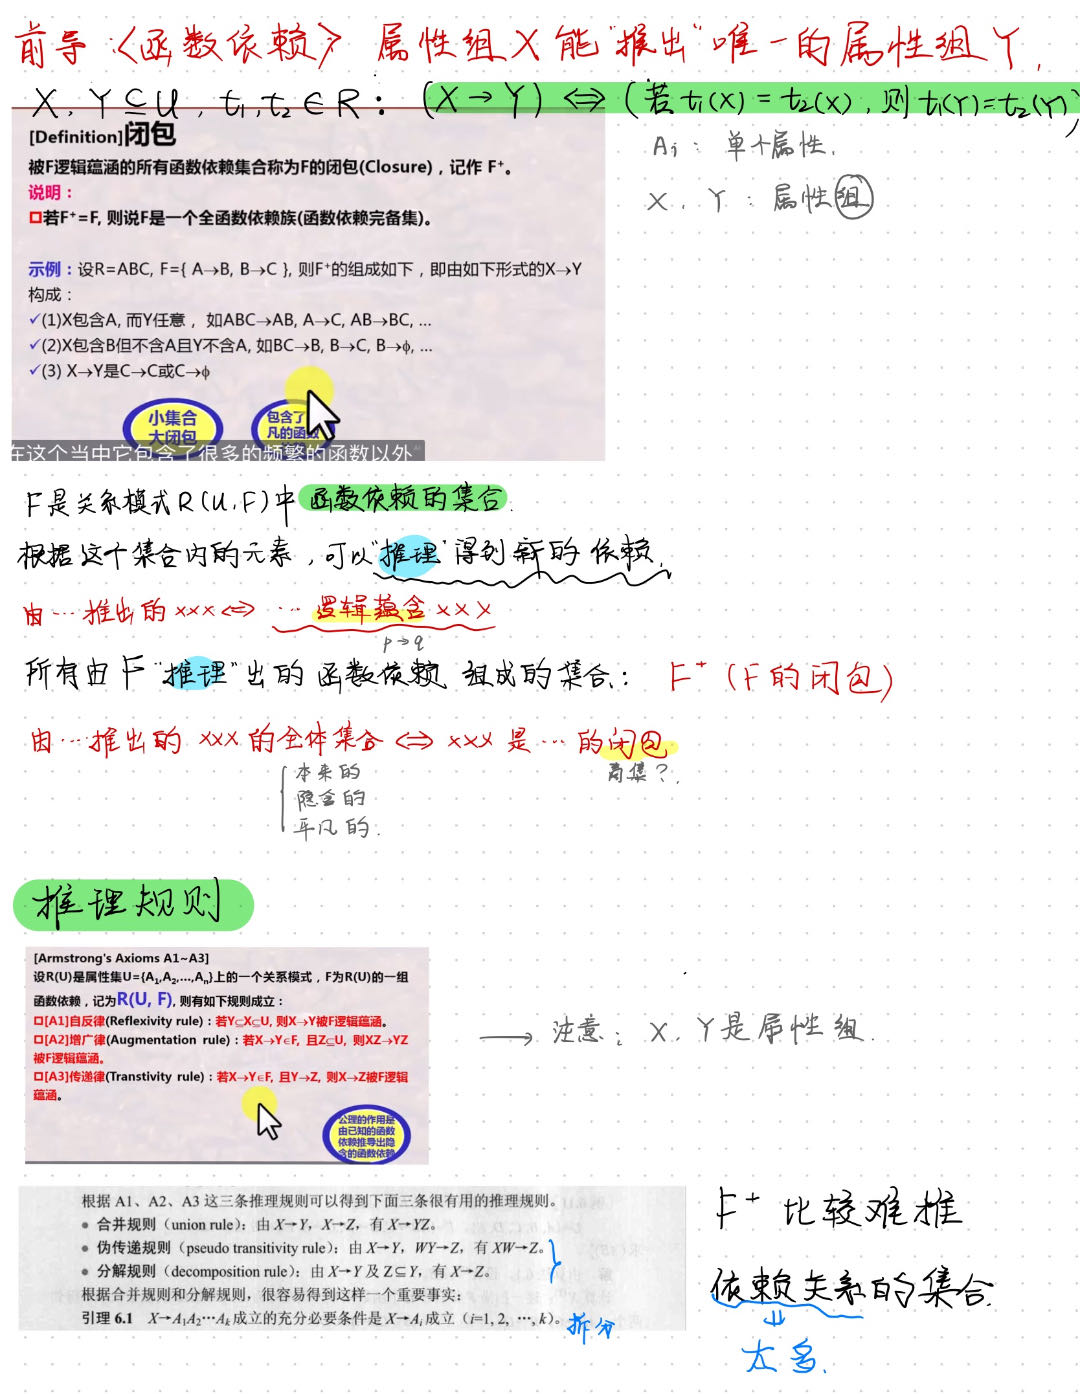 前导〈函数依赖〉 属性组X能"推出"唯一的属性组Y.
X, Y⊆U, t₁,t₂∈R: (X→Y) ⇔ (若t₁(X)=t₂(X), 则t₁(Y)=t₂(Y))
[Definition]闭包
被F逻辑蕴涵的所有函数依赖集合称为F的闭包(Closure)，记作 F⁺。
说明：
若F⁺=F, 则说F是一个全函数依赖族(函数依赖完备集)。
示例：设R=ABC, F={ A→B, B→C }, 则F⁺的组成如下，即由如下形式的X→Y
构成：
✓(1)X包含A, 而Y任意， 如ABC→AB, A→C, AB→BC, ...
✓(2)X包含B但不含A且Y不含A, 如BC→B, B→C, B→ϕ, ...
✓(3) X→Y是C→C或C→ϕ
小集合
大闭包
包含了
凡的函数
在这个当中它包含了很多的频繁的函数以外
Aᵢ: 单个属性.
X, Y: 属性组
F是关系模式R(U,F)中函数依赖的集合.
根据这个集合内的元素, 可以"推理"得到新的依赖.
由…推出的xxx⇔ …逻辑蕴含xxx
p→q
所有由F"推理"出的函数依赖组成的集合: F⁺(F的闭包)
由…推出的xxx的全体集合⇔xxx是…的闭包
本来的
隐含的
平凡的.
推理规则
[Armstrong's Axioms A1~A3]
设R(U)是属性集U={A₁,A₂,...,Aₙ}上的一个关系模式，F为R(U)的一组
函数依赖，记为R(U, F), 则有如下规则成立：
[A1]自反律(Reflexivity rule)：若Y⊆X⊆U, 则X→Y被F逻辑蕴涵。
[A2]增广律(Augmentation rule)：若X→Y∈F, 且Z⊆U, 则XZ→YZ
被F逻辑蕴涵。
[A3]传递律(Transtivity rule)：若X→Y∈F, 且Y→Z, 则X→Z被F逻辑
蕴涵。
公理的作用是
由已知的函数
依赖推导出隐
含的函数依赖
→ 注意: X, Y是属性组.
根据 A1、A2、A3 这三条推理规则可以得到下面三条很有用的推理规则。
• 合并规则（union rule）：由 X→Y，X→Z，有 X→YZ。
• 伪传递规则（pseudo transitivity rule）：由 X→Y，WY→Z，有 XW→Z。
• 分解规则（decomposition rule）：由 X→Y 及 Z⊆Y，有 X→Z。
根据合并规则和分解规则，很容易得到这样一个重要事实：
引理 6.1 X→A₁A₂⋯Aₖ成立的充分必要条件是 X→Aᵢ成立（i=1, 2, ⋯, k）。
拆分
F⁺比较难推
依赖关系的集合.
⇓
太多.